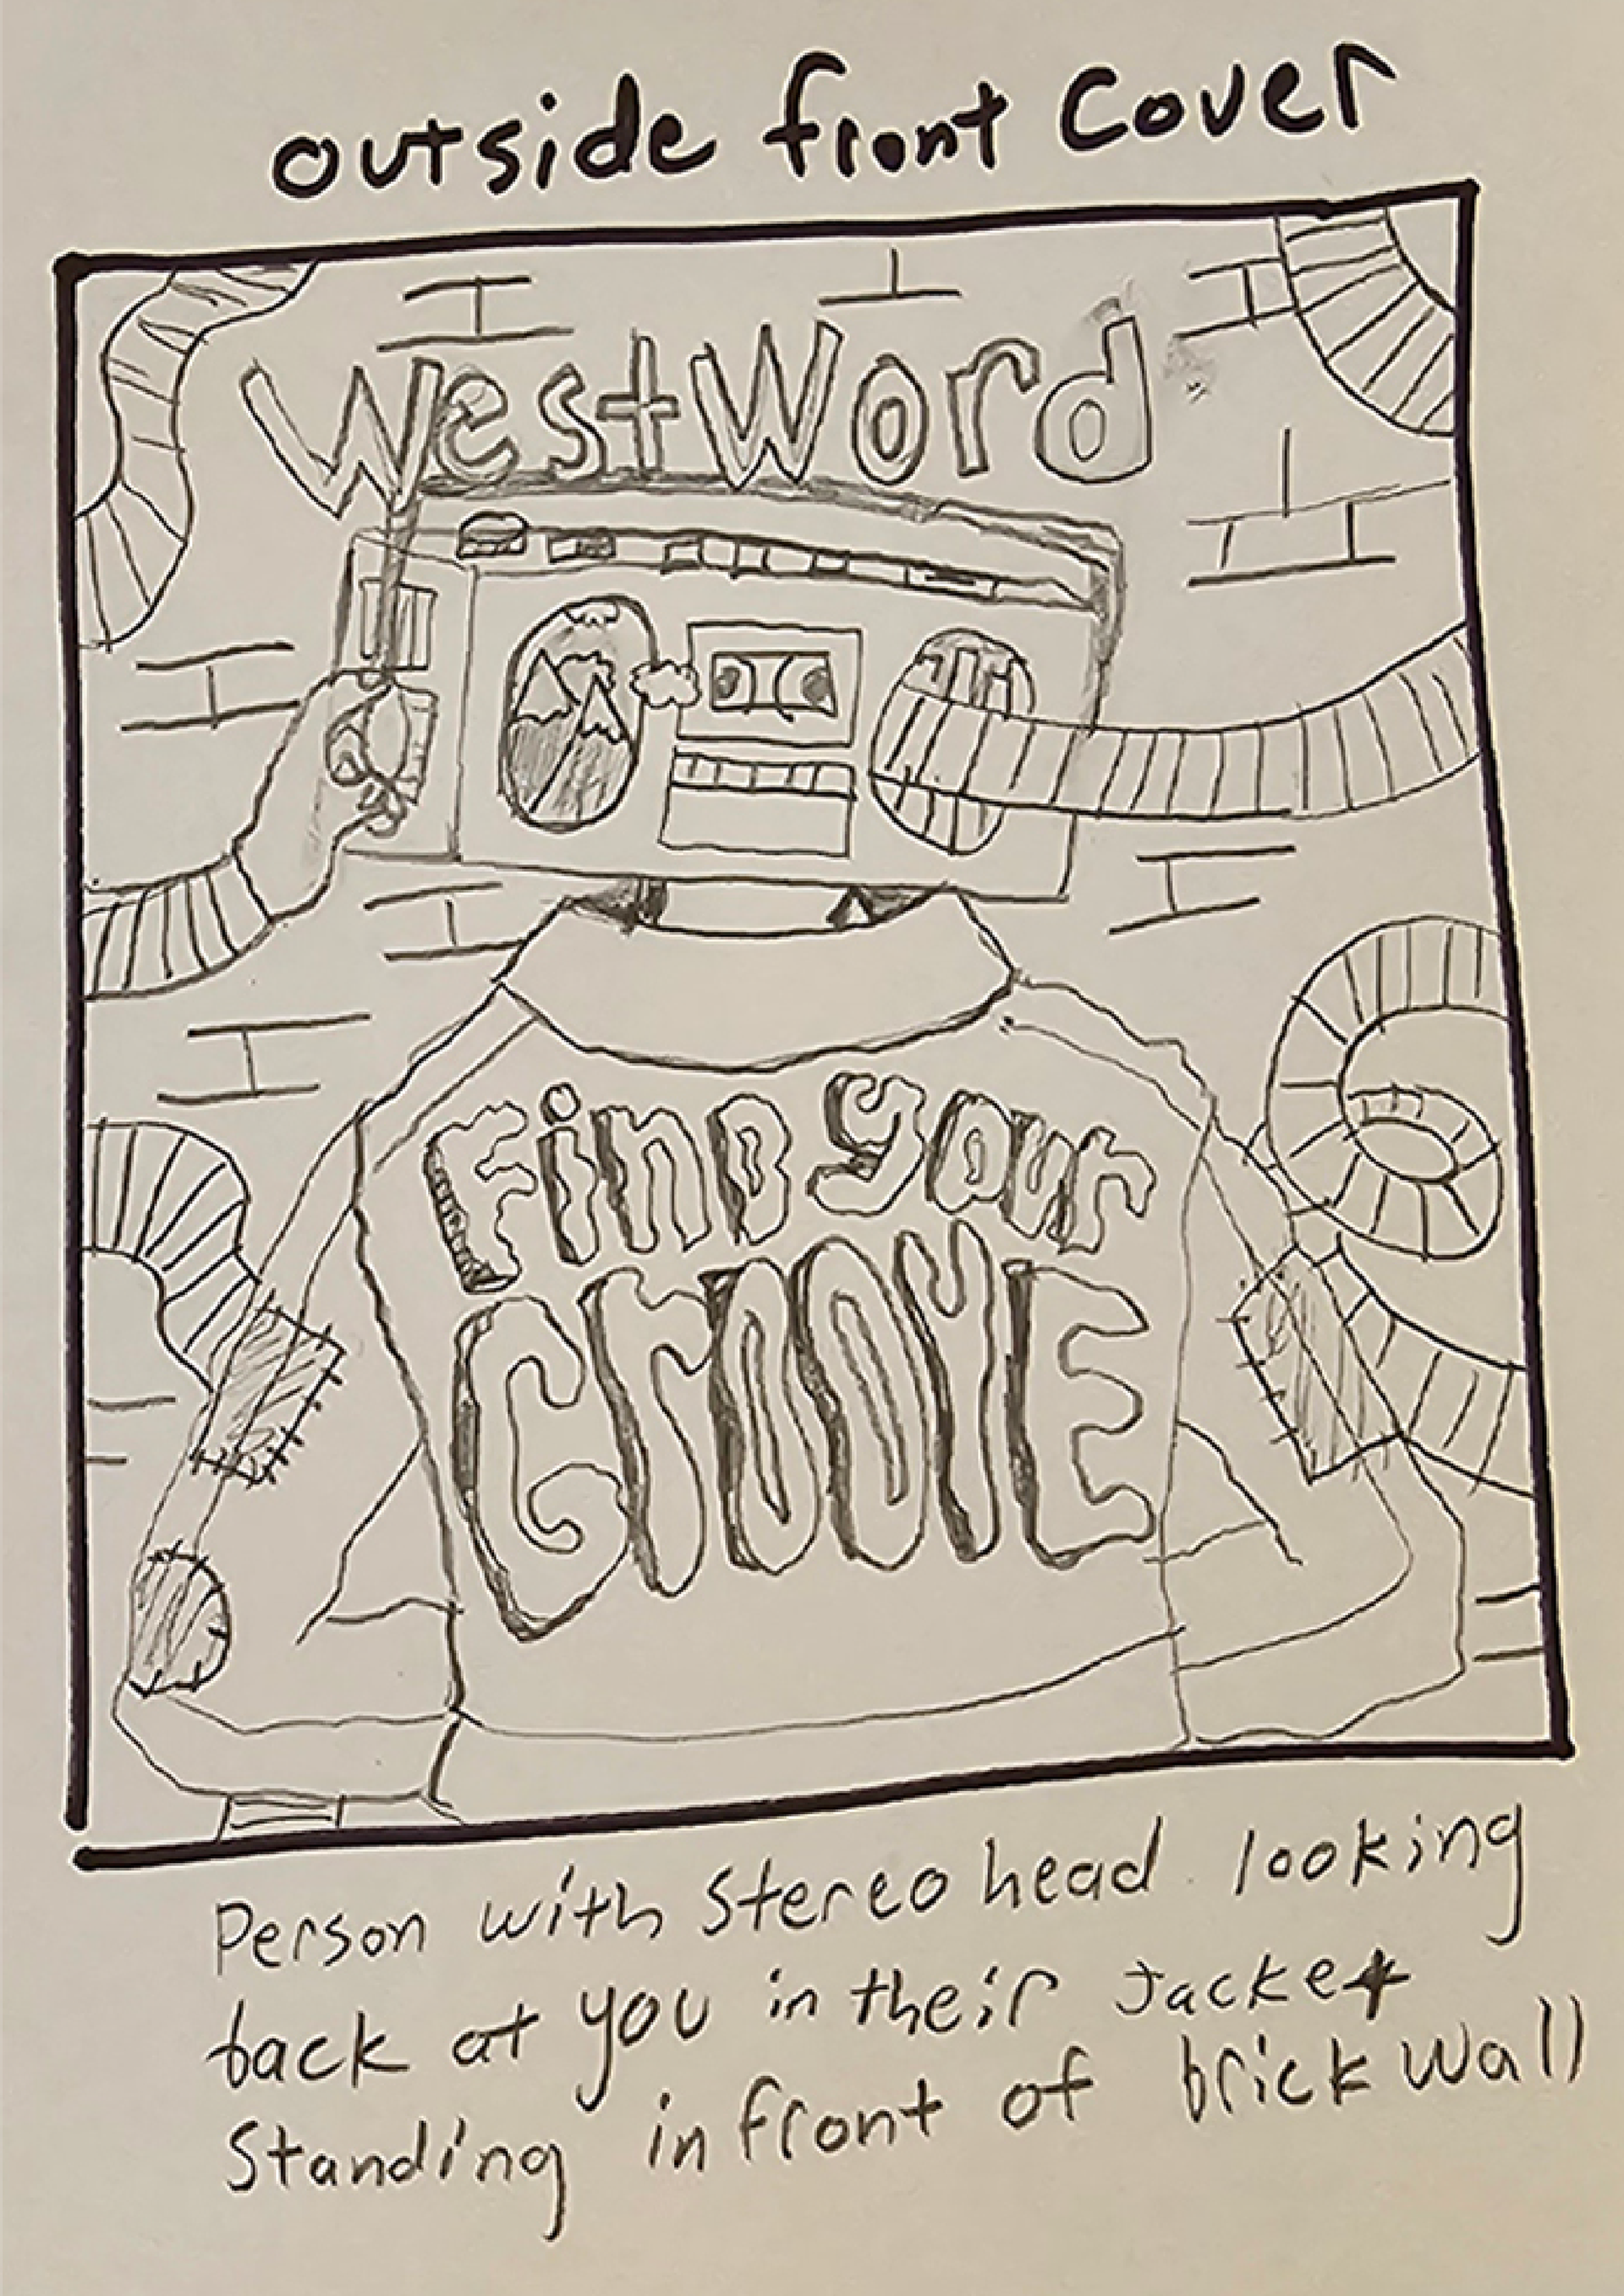 outside front Cover
WestWord
Find your
GrOOVE
Person with Stereo head looking
back at you in their Jacket
Standing in front of brick wall